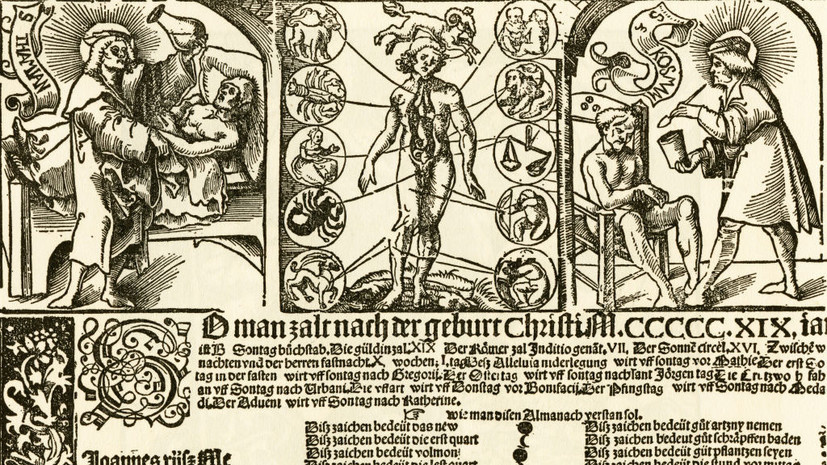 S THAMIAN
S COSMAS
SO man zalt nach der geburt Christi. M. CCCCC. XIX, iar
ist B Sontag bůchstab, Die güldin zal. XIX Der Römer zal Inditio genāt, VII. Der Sonnē circel. XVI, Zwischē w
nachten vnd der herren fastnacht. X wochen; Weiß Alleluia niderlegung wirt vff sontag vor Mathie Der erst So
tag in der fasten wirt vff sontag nach Gregorij. Der Ostertag wirt vff sontag nach sant Jörgen tag Die
an vff Sontag nach Urbani. Die vffart wirt vff Donstag vor Bonifacij. Der Pfingstag wirt vff Sontag nach Meda
di. Der Aduent wirt vff Sontag nach Katherine.
☞ wie man disen Almanach verstan sol.
Joannes
Diß zaichen bedeüt das new
Diß zaichen bedeüt die erst quart
Diß zaichen bedeüt volmon
Diß zaichen bedeüt die lest quart
Diß zaichen bedeüt gůt artzny nemen
Diß zaichen bedeut gůt schräpffen baden
Diß zaichen bedeüt gůt pflantzen seyen
Diß zaichen bedeüt die stund